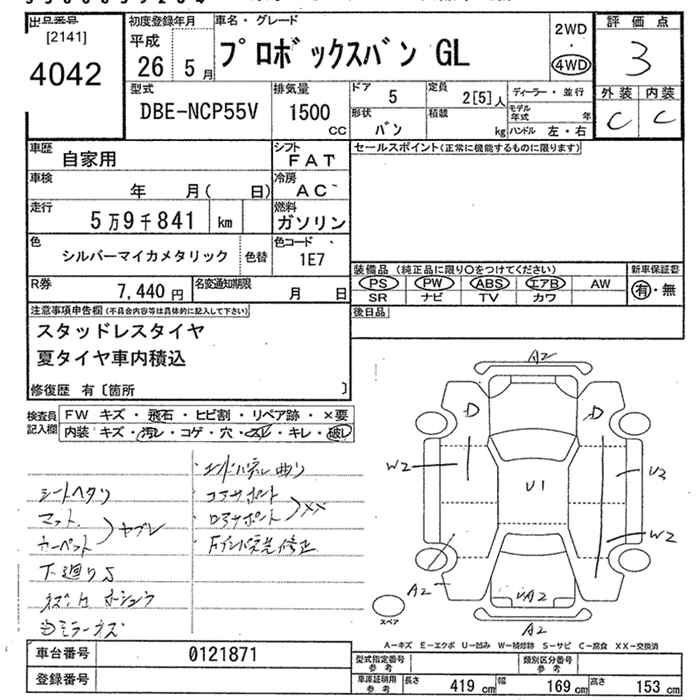 出品番号
[2141]
4042
初度登録年月
平成
26 5月
車名・グレード
プロボックスバン GL
2WD
・
4WD
評価点
3
外装 内装
C C
型式
DBE-NCP55V
排気量
1500
CC
ドア
5
定員
2[5]人
ディーラー・並行
形状
バン
積載
kg
モデル年式 年
ハンドル 左・右
車歴
自家用
シフト
FAT
車検
年 月( 日)
冷房
AC
走行
5万9千841 km
燃料
ガソリン
色
シルバーマイカメタリック
色替
色コード
1E7
R券
7,440 円
名変通知期限
月 日
セールスポイント(正常に機能するものに限ります)
装備品 (純正品に限り○をつけてください)
新車保証書
PS PW ABS エアB AW
有・無
SR ナビ TV カワ
後日品
注意事項申告欄(不具合内容等は具体的に記入して下さい)
スタッドレスタイヤ
夏タイヤ車内積込
修復歴 有〔箇所 〕
検査員記入欄
FW キズ・飛石・ヒビ割・リペア跡・×要
内装 キズ・汚レ・コゲ・穴・スレ・キレ・破レ
シートヘタリ
マット
カーペット
ヤブレ
下廻りS
・エンドパネル曲り
・コアサポート
・ロアサポート
XX
A2
D
D
W2
U1
U3
W2
A2
UA2
A2
スペア
A－キズ E－エクボ U－凹み W－補修跡 S－サビ C－腐食 XX－交換済
車台番号
0121871
登録番号
型式指定番号
参考
類別区分番号
参考
車庫証明用
参考
長さ 419 cm 幅 169 cm 高さ 153 cm